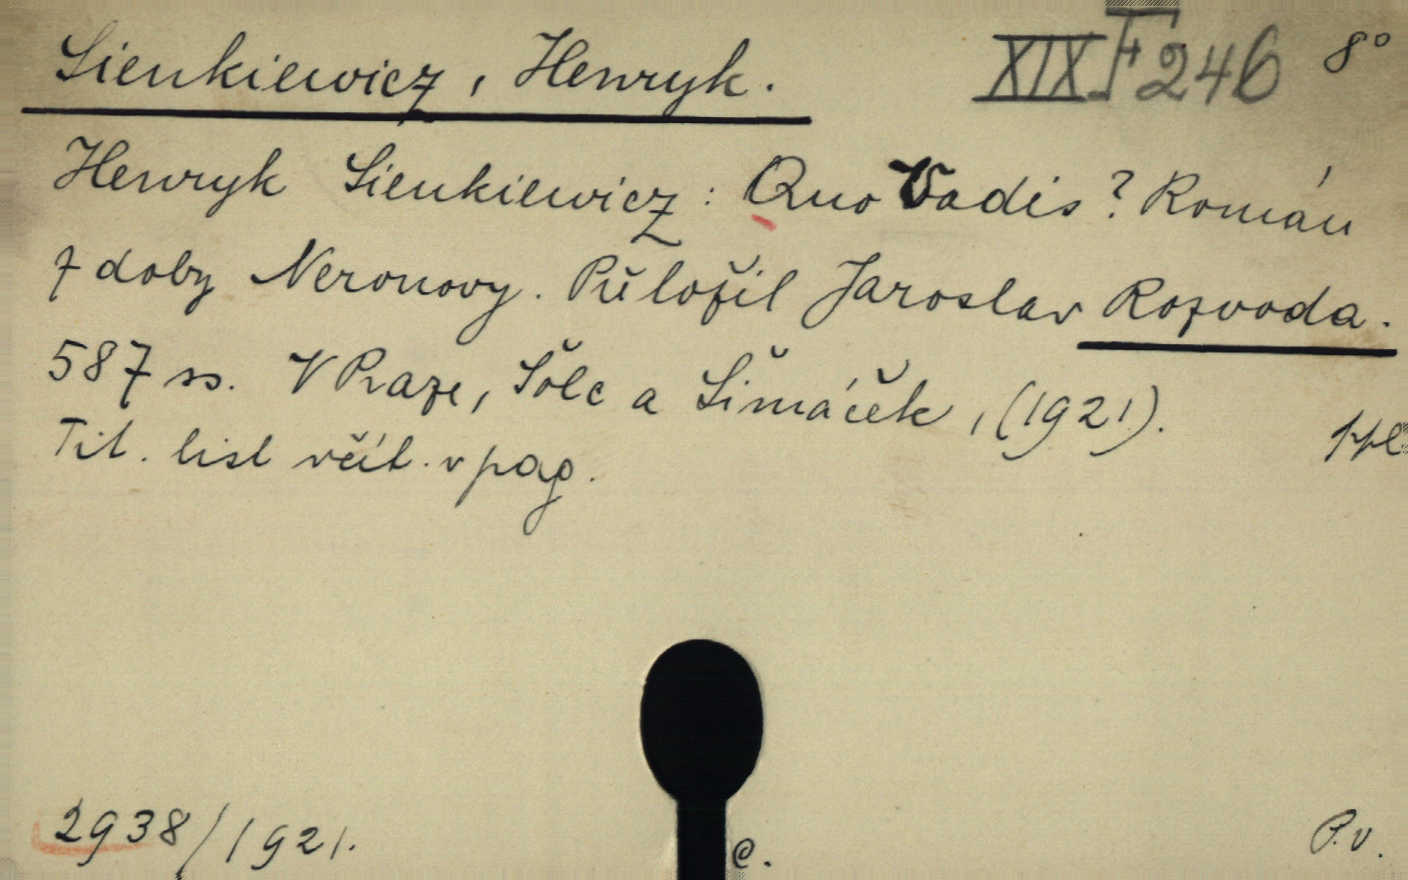 Sienkiewicz, Henryk. XIX F 246 8°
Henryk Sienkiewicz: Quo Vadis? Román
z doby Neronovy. Přeložil Jaroslav Rozvoda.
587 ss. V Praze, Šolc a Šimáček, (1921).
Tit. list včít. v pag.
2938/1921. c. P.v.